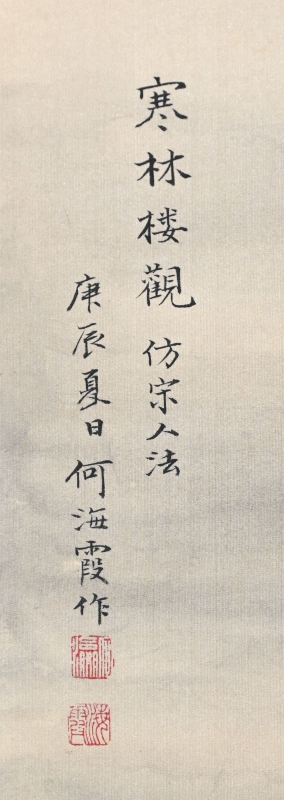 寒林楼觀仿宋人法
庚辰夏日何海霞作